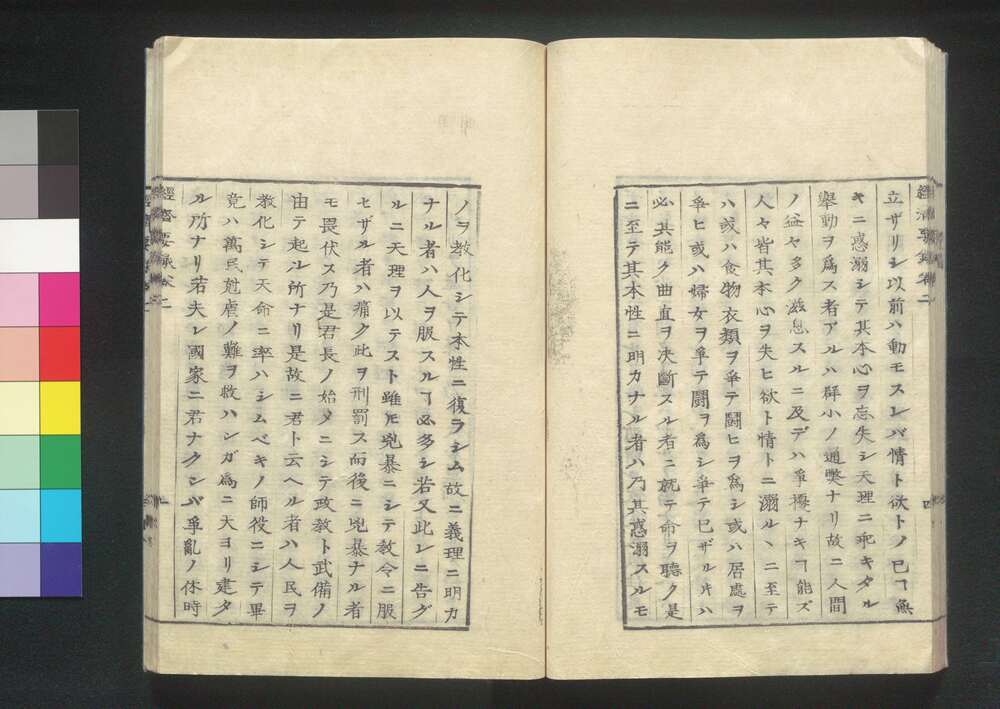 經濟要録卷二
立ザリシ以前ハ動モスレバ情ト欲トノ已ヿ無
キニ惑溺シテ其本心ヲ忘失シ天理ニ乖キタル
擧動ヲ為ス者アルハ群小ノ通弊ナリ故ニ人間
ノ益々多ク滋息スルニ及デハ爭擾ナキヿ能ズ
人々皆其本心ヲ失ヒ欲ト情トニ溺ルヽニ至テ
ハ或ハ食物衣類ヲ爭テ鬪ヒヲ為シ或ハ居處ヲ
爭ヒ或ハ婦女ヲ爭テ鬪ヲ為シ爭テ已ザル片ハ
必其能ク曲直ヲ决斷スル者ニ就テ命ヲ聽ク是
ニ至テ其本性ニ明カナル者ハ乃其惑溺スルモ
ノヲ教化シテ本性ニ復ラシム故ニ義理ニ明カ
ナル者ハ人ヲ服スルヿ必多シ若又此レニ告グ
ルニ天理ヲ以テスト雖𪜈兇暴ニシテ教令ニ服
セザル者ハ痛ク此ヲ刑罰ス而後ニ兇暴ナル者
モ畏伏ス乃是君長ノ始メニシテ政教ト武備ノ
由テ起ル所ナリ是故ニ君ト云ヘル者ハ人民ヲ
教化シテ天命ニ率ハシムベキノ師役ニシテ畢
竟ハ萬民尅虐ノ難ヲ救ハンガ為ニ天ヨリ建タ
ル所ナリ若夫レ國家ニ君ナクンバ爭亂ノ休時
經濟要録卷二